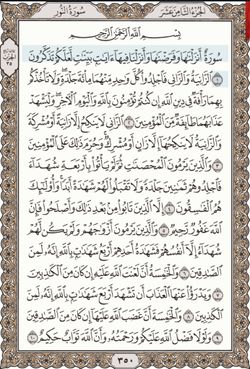 الجزء الثامن عشر
سورة النور
بِسْمِ ٱللَّهِ ٱلرَّحْمَٰنِ ٱلرَّحِيمِ
سُورَةٌ أَنزَلْنَٰهَا وَفَرَضْنَٰهَا وَأَنزَلْنَا فِيهَآ ءَايَٰتٍۭ بَيِّنَٰتٍ لَّعَلَّكُمْ تَذَكَّرُونَ
١ ٱلزَّانِيَةُ وَٱلزَّانِى فَٱجْلِدُوا۟ كُلَّ وَٰحِدٍ مِّنْهُمَا مِا۟ئَةَ جَلْدَةٍ وَلَا تَأْخُذْكُم
بِهِمَا رَأْفَةٌ فِى دِينِ ٱللَّهِ إِن كُنتُمْ تُؤْمِنُونَ بِٱللَّهِ وَٱلْيَوْمِ ٱلْءَاخِرِ وَلْيَشْهَدْ
عَذَابَهُمَا طَآئِفَةٌ مِّنَ ٱلْمُؤْمِنِينَ ٢ ٱلزَّانِى لَا يَنكِحُ إِلَّا زَانِيَةً أَوْ مُشْرِكَةً
وَٱلزَّانِيَةُ لَا يَنكِحُهَآ إِلَّا زَانٍ أَوْ مُشْرِكٌ وَحُرِّمَ ذَٰلِكَ عَلَى ٱلْمُؤْمِنِينَ
٣ وَٱلَّذِينَ يَرْمُونَ ٱلْمُحْصَنَٰتِ ثُمَّ لَمْ يَأْتُوا۟ بِأَرْبَعَةِ شُهَدَآءَ
فَٱجْلِدُوهُمْ ثَمَٰنِينَ جَلْدَةً وَلَا تَقْبَلُوا۟ لَهُمْ شَهَٰدَةً أَبَدًا وَأُو۟لَٰٓئِكَ
هُمُ ٱلْفَٰسِقُونَ ٤ إِلَّا ٱلَّذِينَ تَابُوا۟ مِنۢ بَعْدِ ذَٰلِكَ وَأَصْلَحُوا۟ فَإِنَّ
ٱللَّهَ غَفُورٌ رَّحِيمٌ ٥ وَٱلَّذِينَ يَرْمُونَ أَزْوَٰجَهُمْ وَلَمْ يَكُن لَّهُمْ
شُهَدَآءُ إِلَّآ أَنفُسُهُمْ فَشَهَٰدَةُ أَحَدِهِمْ أَرْبَعُ شَهَٰدَٰتٍۭ بِٱللَّهِ إِنَّهُۥ لَمِنَ
ٱلصَّٰدِقِينَ ٦ وَٱلْخَٰمِسَةُ أَنَّ لَعْنَتَ ٱللَّهِ عَلَيْهِ إِن كَانَ مِنَ ٱلْكَٰذِبِينَ
٧ وَيَدْرَؤُا۟ عَنْهَا ٱلْعَذَابَ أَن تَشْهَدَ أَرْبَعَ شَهَٰدَٰتٍۭ بِٱللَّهِ إِنَّهُۥ لَمِنَ ٱلْكَٰذِبِينَ
٨ وَٱلْخَٰمِسَةَ أَنَّ غَضَبَ ٱللَّهِ عَلَيْهَآ إِن كَانَ مِنَ ٱلصَّٰدِقِينَ
٩ وَلَوْلَا فَضْلُ ٱللَّهِ عَلَيْكُمْ وَرَحْمَتُهُۥ وَأَنَّ ٱللَّهَ تَوَّابٌ حَكِيمٌ ١٠
٣٥٠